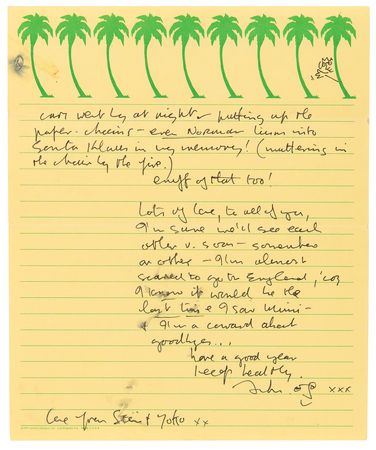 cars went by at night & putting up the
paper-chains - even Norman turns into
Santa Klaus in my memory! (muttering in
the chair by the fire.)
enuff of that too!
Lots of love, to all of you,
I'm sure we'll see each
other v. soon - somewhere
or other - I'm almost
scared to go to England, 'coz
I know it would be the
last time I saw Mimi -
& I'm a coward about
goodbyes...
have a good year
keep healthy.
John. xxx
love from Sean & Yoko xx